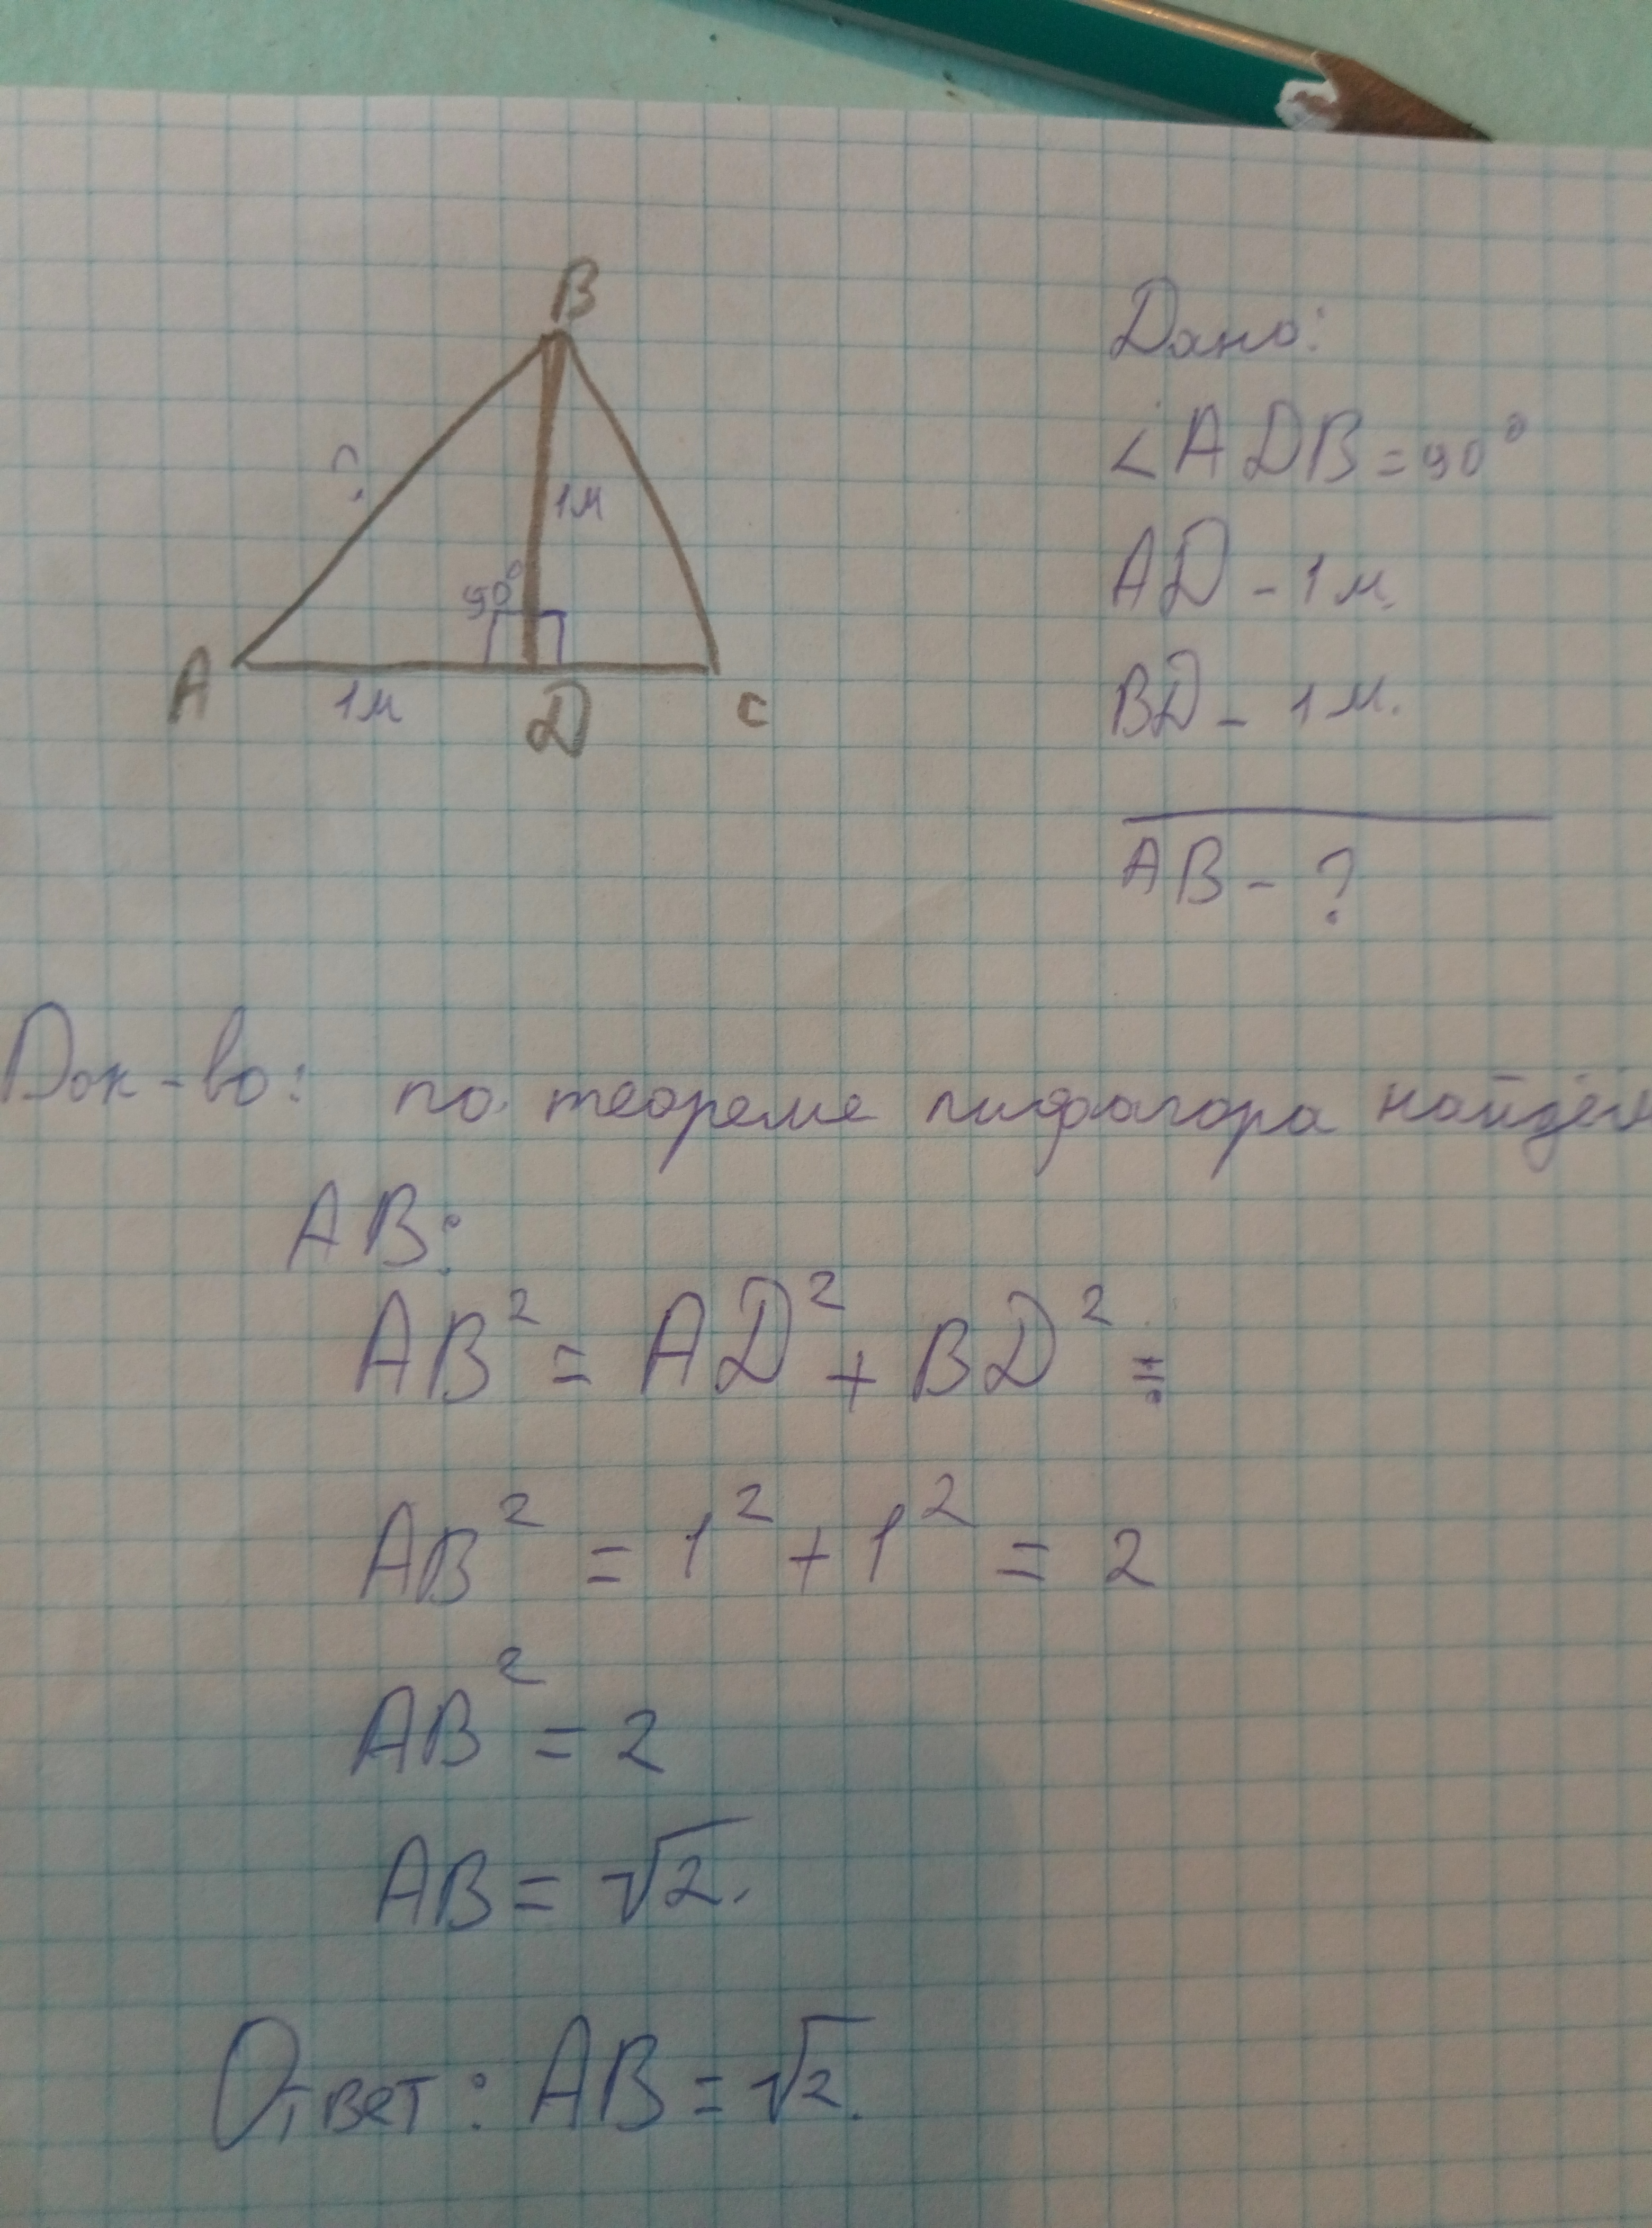 B
?
1м
90°
A
1м
D
C
Дано:
∠ADB=90°
AD - 1м.
BD - 1м.
AB - ?
Док-во: по теореме пифагора найдём
AB:
AB² = AD² + BD² =
AB² = 1² + 1² = 2
AB² = 2
AB = √2.
Ответ: AB = √2.